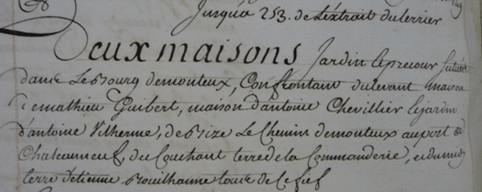 Jusqu'a 253. de Lextrait du terrier
Deux maisons Jardin le precour scitué
dans Le Bourg demonteux, Confrontant dulevant maison
de mathieu Guibert, maison d'antoine Chevillier le jardin
d'antoine Vitherme, de Bize Le Chemin demonteux au port de
Chateauneuf, du Couchant terre de la Commanderie, et du midy
terre d'etienne rouilhanne tout de Ce fief